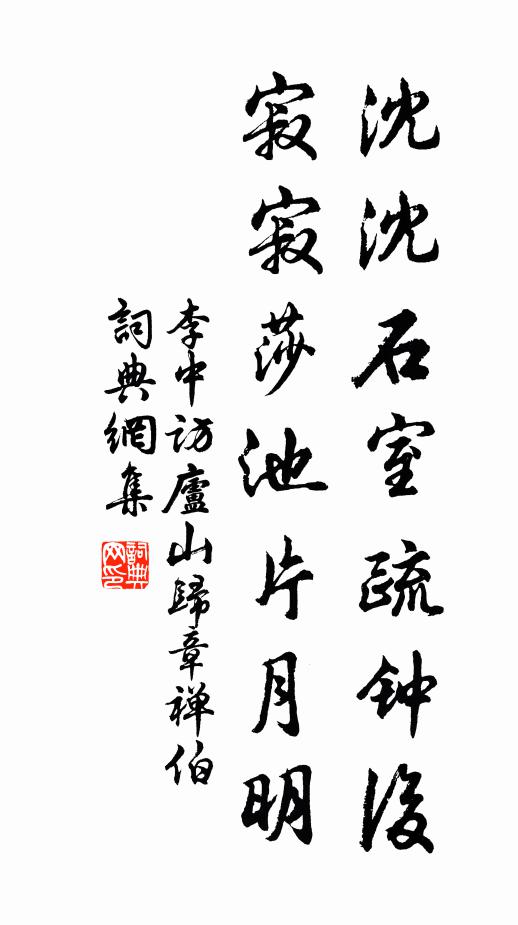 沈沈石室疏钟後
寂寂莎池片月明
李中訪廬山歸章禅伯
詞典網集
詞典网印